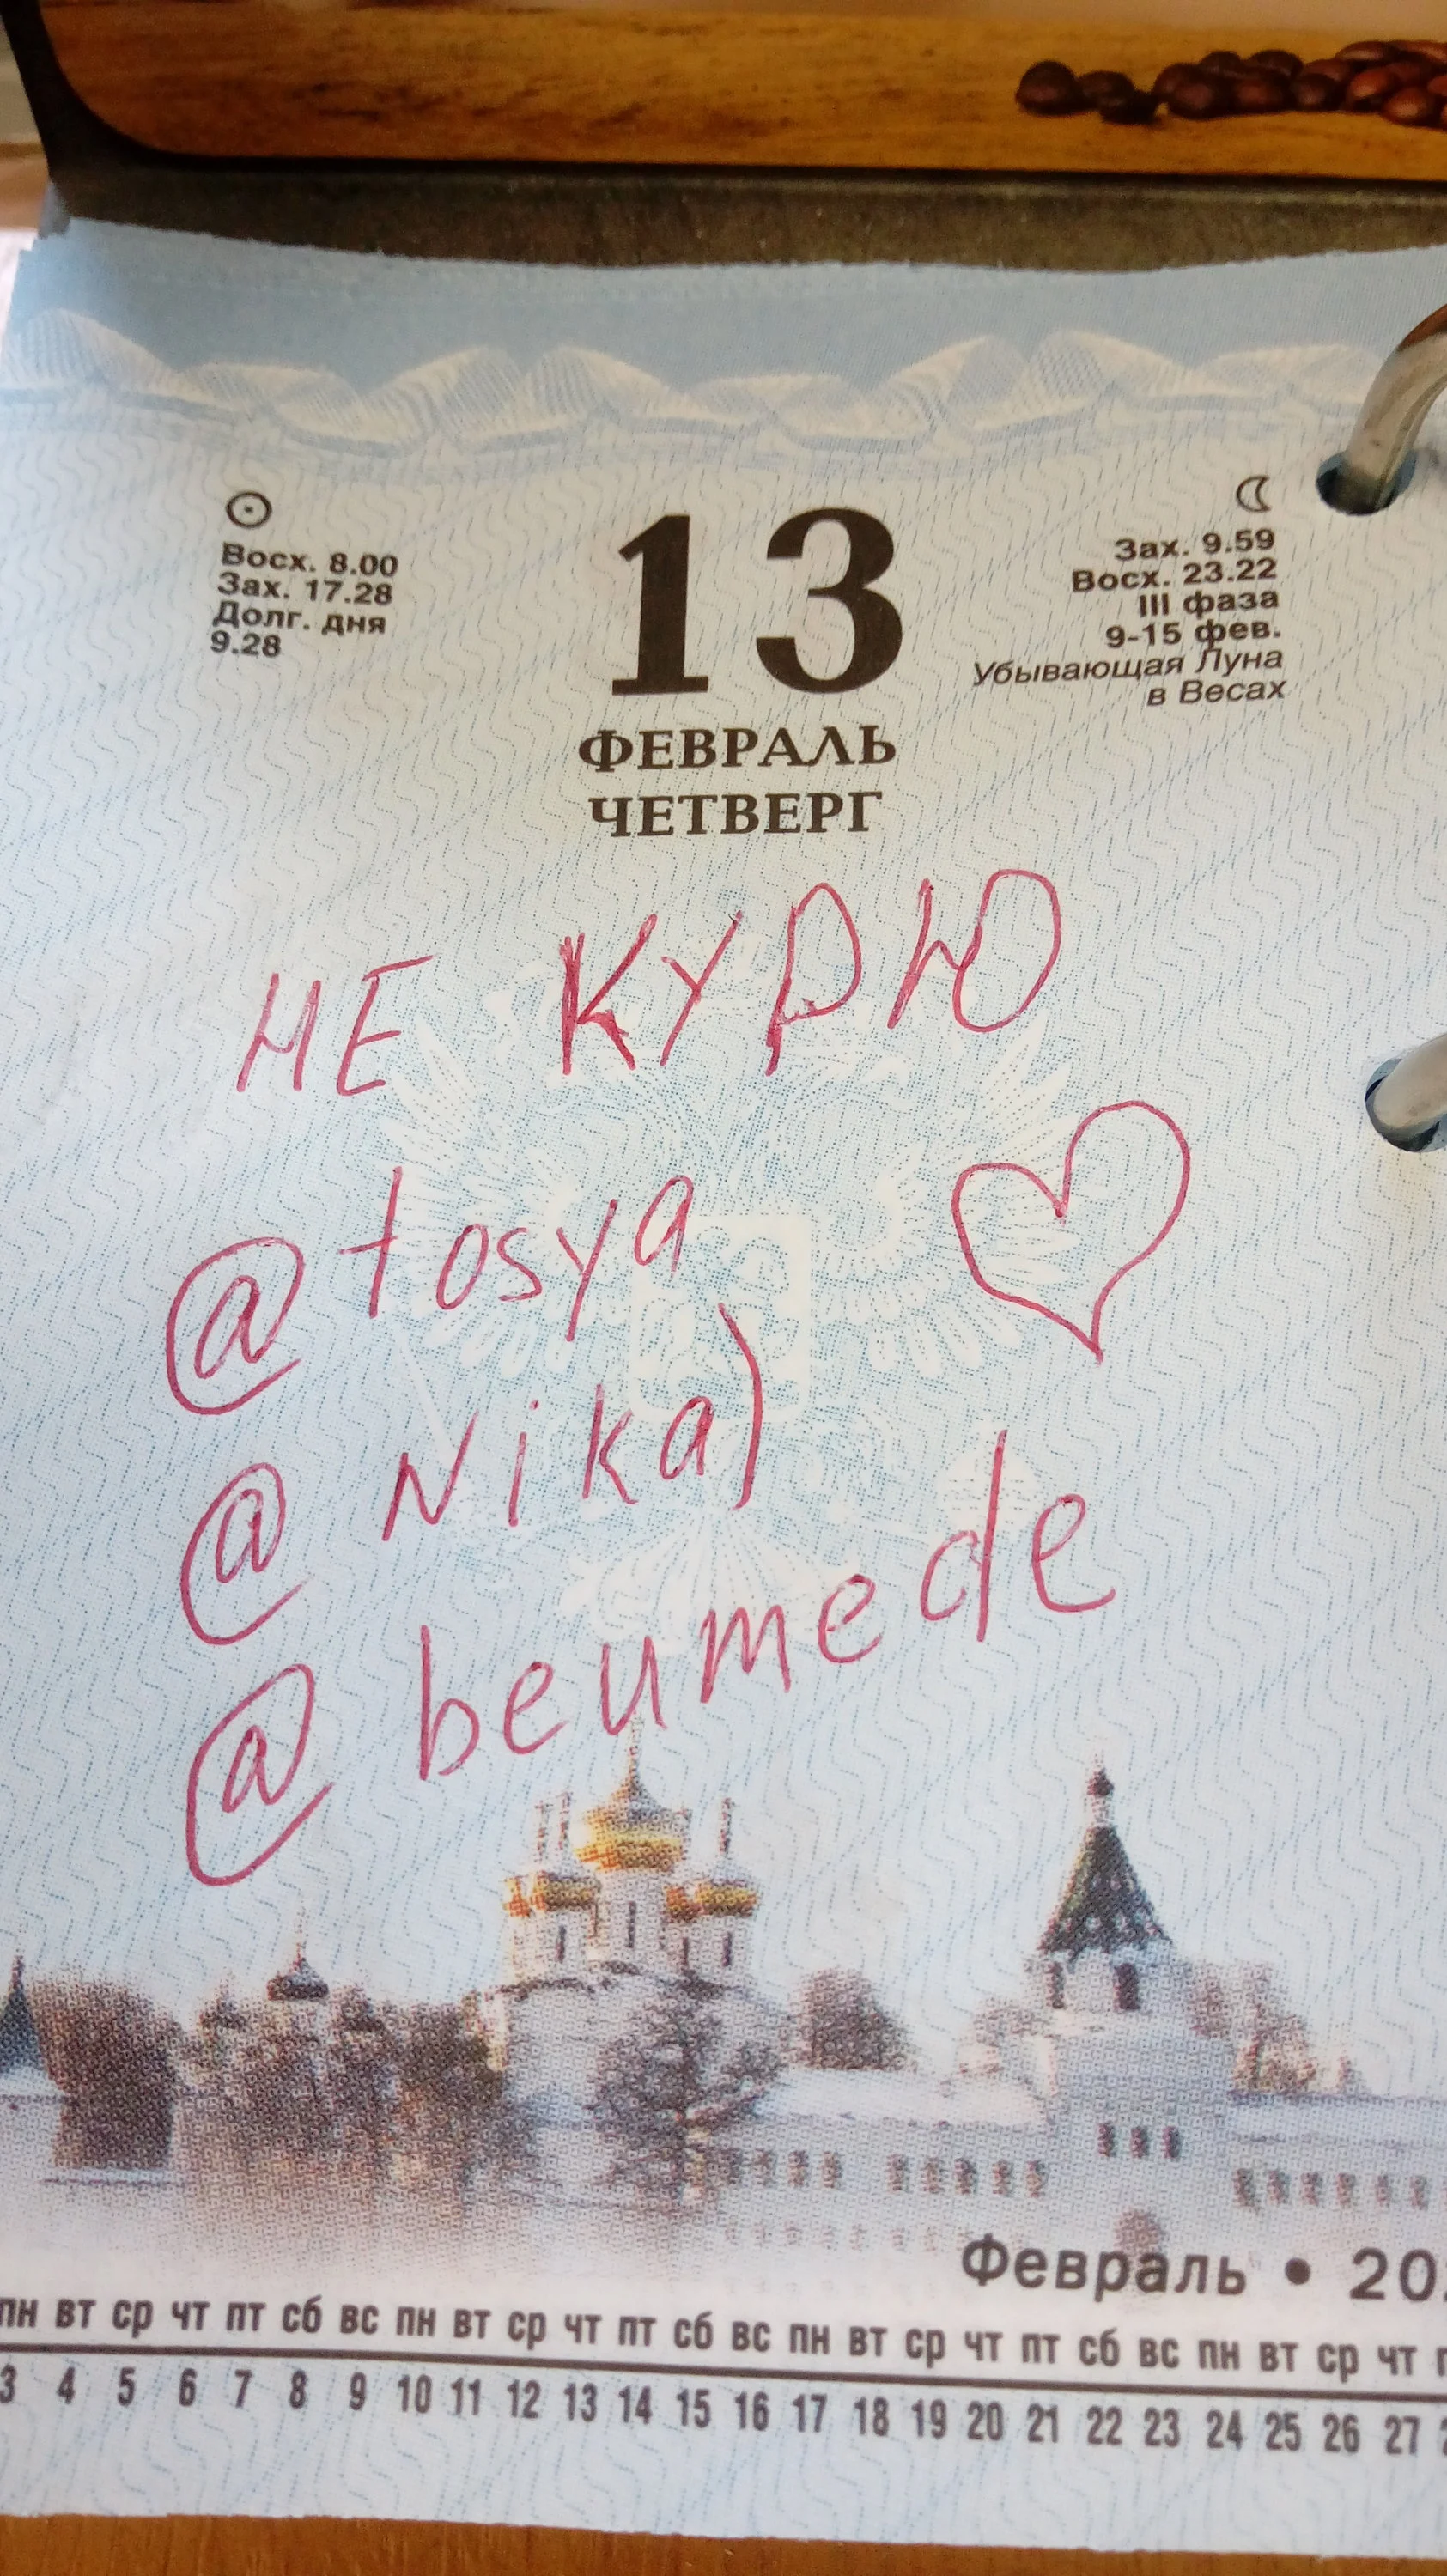 Восх. 8.00
Зах. 17.28
Долг. дня
9.28
13
ФЕВРАЛЬ
ЧЕТВЕРГ
Зах. 9.59
Восх. 23.22
III фаза
9-15 фев.
Убывающая Луна
в Весах
НЕ КУРЮ
@tosya
@Nika)
@beumede
Февраль • 20
пн вт ср чт пт сб вс пн вт ср чт пт сб вс пн вт ср чт пт сб вс пн вт ср чт
3 4 5 6 7 8 9 10 11 12 13 14 15 16 17 18 19 20 21 22 23 24 25 26 27